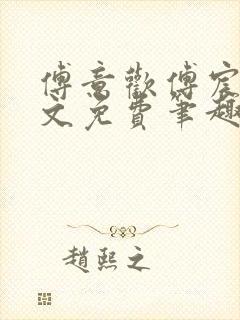 傅意歡傅宸
文免費筆趣
趙熙之